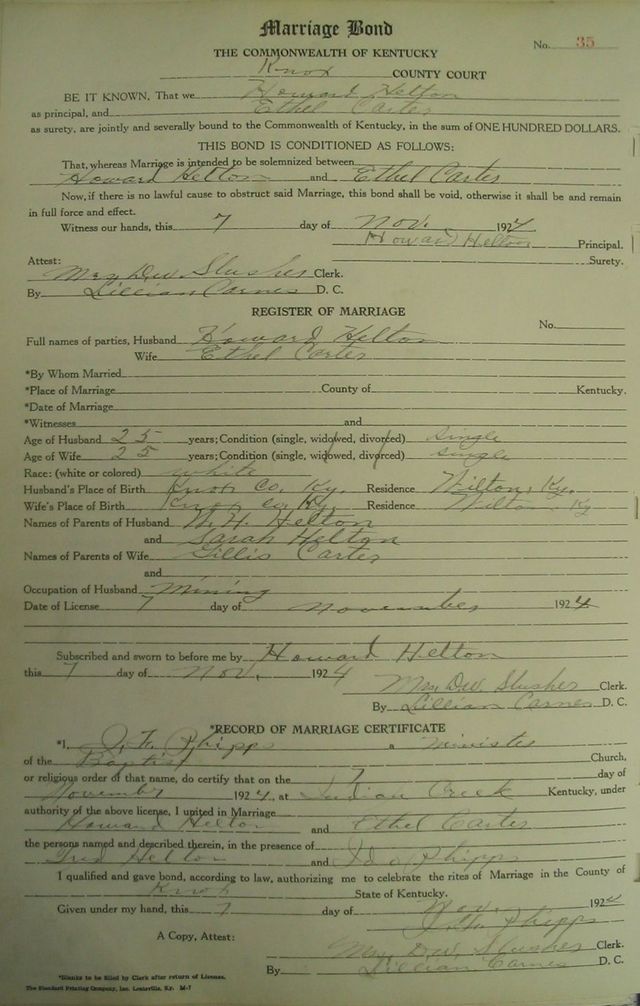 Marriage Bond
No. 35
THE COMMONWEALTH OF KENTUCKY
Knox COUNTY COURT
BE IT KNOWN, That we Howard Helton
as principal, and Ethel Carter
as surety, are jointly and severally bound to the Commonwealth of Kentucky, in the sum of ONE HUNDRED DOLLARS.
THIS BOND IS CONDITIONED AS FOLLOWS:
That, whereas Marriage is intended to be solemnized between
Howard Helton and Ethel Carter
Now, if there is no lawful cause to obstruct said Marriage, this bond shall be void, otherwise it shall be and remain
in full force and effect.
Witness our hands, this 7 day of Nov. 1924
Howard Helton Principal.
Attest: Surety.
Mrs D.W. Slusher Clerk.
By Lillian Carnes D. C.
REGISTER OF MARRIAGE
No.
Full names of parties, Husband Howard Helton
Wife Ethel Carter
*By Whom Married
*Place of Marriage County of Kentucky.
*Date of Marriage
*Witnesses and
Age of Husband 25 years; Condition (single, widowed, divorced) single
Age of Wife 25 years; Condition (single, widowed, divorced) single
Race: (white or colored) white
Husband's Place of Birth Knox Co. Ky. Residence Wilton, Ky.
Wife's Place of Birth Knox Co. Ky. Residence Wilton, Ky
Names of Parents of Husband W. H. Helton
and Sarah Helton
Names of Parents of Wife Gillis Carter
and
Occupation of Husband Mining
Date of License 7 day of November 1924
Subscribed and sworn to before me by Howard Helton
this 7 day of Nov. 1924
Mrs D.W. Slusher Clerk.
By Lillian Carnes D. C.
*RECORD OF MARRIAGE CERTIFICATE
*I, Phipps a Minister
of the Baptist Church,
or religious order of that name, do certify that on the 7 day of
November 1924, at Indian Creek Kentucky, under
authority of the above license, I united in Marriage
Howard Helton and Ethel Carter
the persons named and described therein, in the presence of
Fred Helton and Phipps
I qualified and gave bond, according to law, authorizing me to celebrate the rites of Marriage in the County of
Knox State of Kentucky.
Given under my hand, this 7 day of Nov. 1924
Phipps
A Copy, Attest: Mrs D.W. Slusher Clerk.
By Lillian Carnes D. C.
*Blanks to be filled by Clerk after return of License.
The Standard Printing Company, Inc. Louisville, Ky. M-7